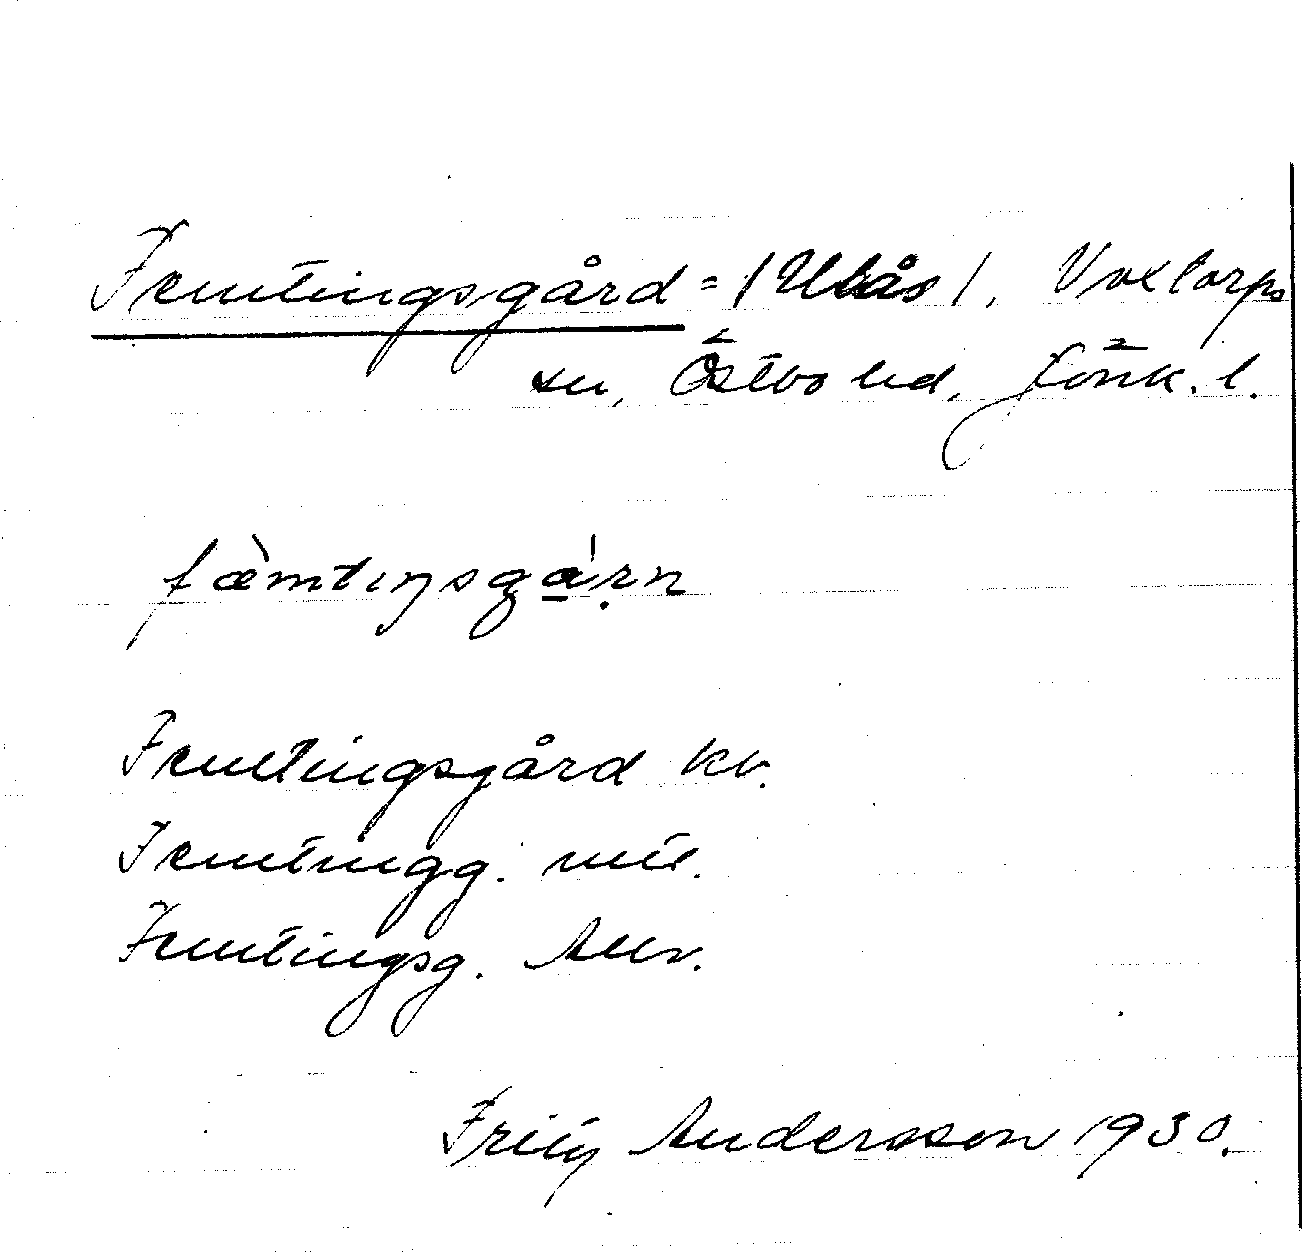 Femtingsgård = /Ulås/, Voxtorps
sn, Östbo hd, Jönk. l.
fæ̀mtiŋsgá̱ṛn
Femtingsgård kv.
Femtingg. mtl.
Femtingsg. Allv.
Fritz Andersson 1930.